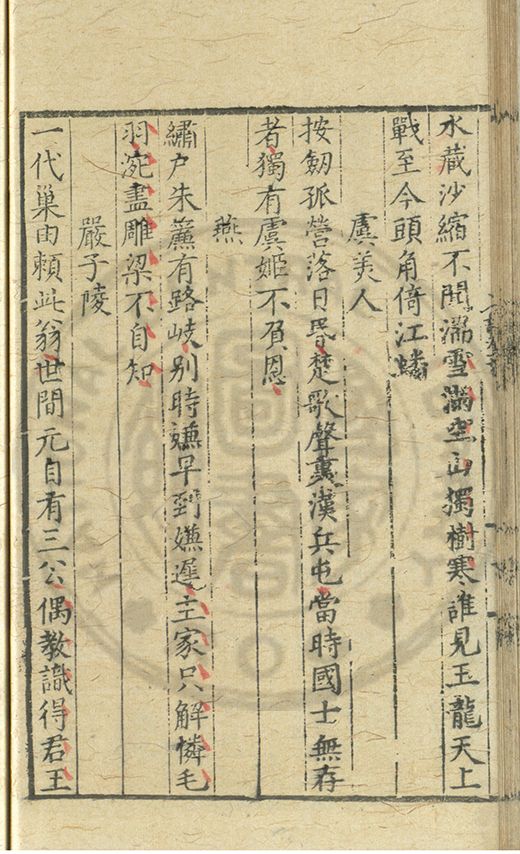 水蔵沙縮不聞潺雪滿空山獨樹寒誰見玉龍天上
戰至今頭角倚江蟠
虞美人
按劔孤營落日昏楚歌聲裏漢兵屯當時國士無存
者獨有虞姬不負恩
燕
繡户朱簾有路岐别時嫌早到嫌遲主家只解憐毛
羽泥盡雕梁不自知
嚴子陵
一代巢由頼此翁世間元自有三公偶教識得君王